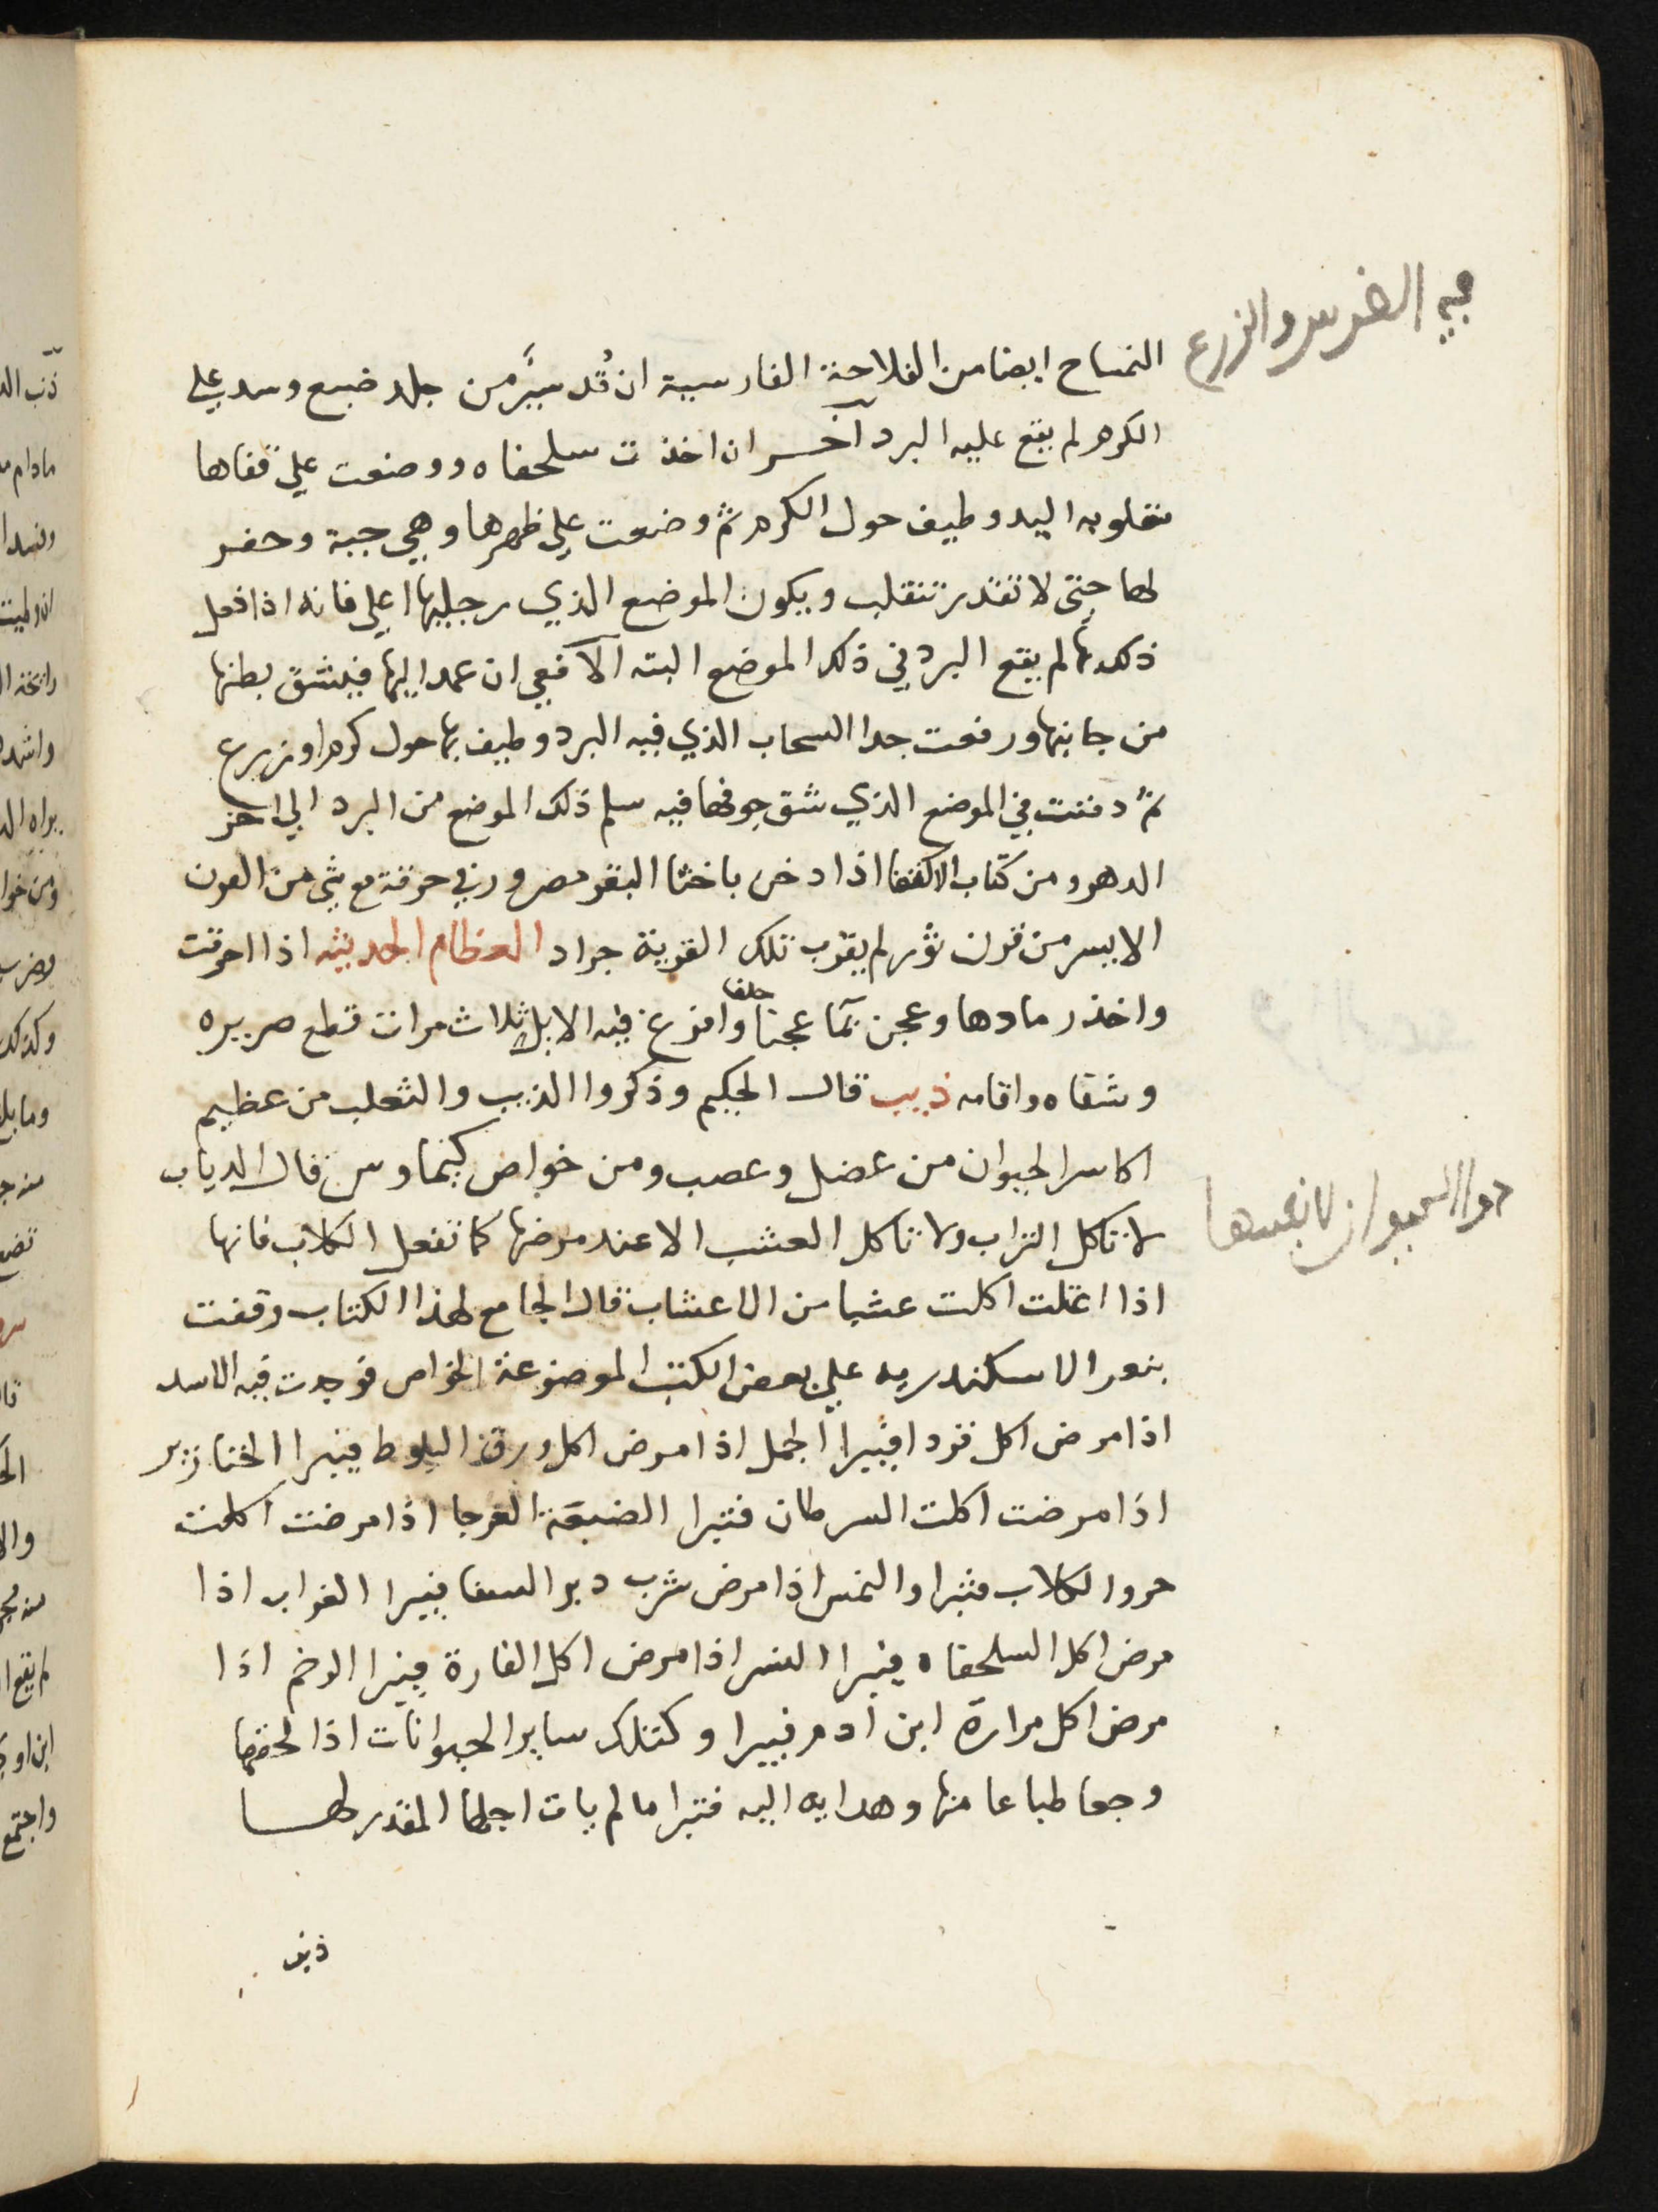 في الغرس والزرع
التمساح ايضا من الفلاحة الفارسية ان قُد سيرٌ من جلد ضبع وسد علي
الكرم لم يقع عليه البرد آخر ان اخذت سلحفاه ووضعت علي قفاها
مقلوبه اليد وطيف حول الكرم ثم وضعت علي ظهرها وهي حية وحفر
لها حتى لا تقدر تنقلب ويكون الموضع الذي رجليها اعلي فانه اذا فعل
ذلك بها لم يقع البرد في ذلك الموضع البته الافعي ان عمد اليها فيشق بطنها
من جانبها ورفعت حدا السحاب الذي فيه البرد وطيف بها حول كرم او زرع
ثم دفنت في الموضع الذي شق جوفها فيه سلم ذلك الموضع من البرد الي اخر
الدهر ومن كتاب الاكفا اذا دخن باخثا البقر مصرور في خرقة مع شي من القرن
الايسر من قرن ثور لم يقرب تلك القرية جراد العظام الحديثه اذا احرقت
واخذ رمادها وعجن بما عجنا وافرغ فيه الابل ثلاث مرات قطع صريره
حلفا
وشفاه واقامه ذيب قال الحكيم وذكروا الذيب والثعلب من عظيم
اكاسر الحيوان من عضل وعصب ومن خواص كيماوس قال الدياب
لا تاكل التراب ولا تاكل العشب الا عند مرضها كما تفعل الكلاب فانها
دوا الحيوان لانفسها
اذا اعتلت اكلت عشبا من الاعشاب قال الجامع لهذا الكتاب وقفت
بثغر الاسكندريه علي بعض الكتب الموضوعة الخواص فوجدت فيه الاسد
اذا مرض اكل قردا فيبرا الجمل اذا مرض اكل ورق البلوط فيبرا الخنازير
اذا مرضت اكلت السرطان فتبرا الضبعة العرجا اذا مرضت اكلت
خروا الكلاب فتبرا والنمس اذا مرض شرب دبر السفا فيبرا الغراب اذا
مرض اكل السلحفاه فيبرا النسر اذا مرض اكل الفارة فيبرا الرخم اذا
مرض اكل مرارة ابن ادم فيبرا وكتلك ساير الحيوانات اذا لحقها
وجعا طباعا منها وهدايه اليه فتبرا ما لم يات اجلها المقدر لها
ذنب